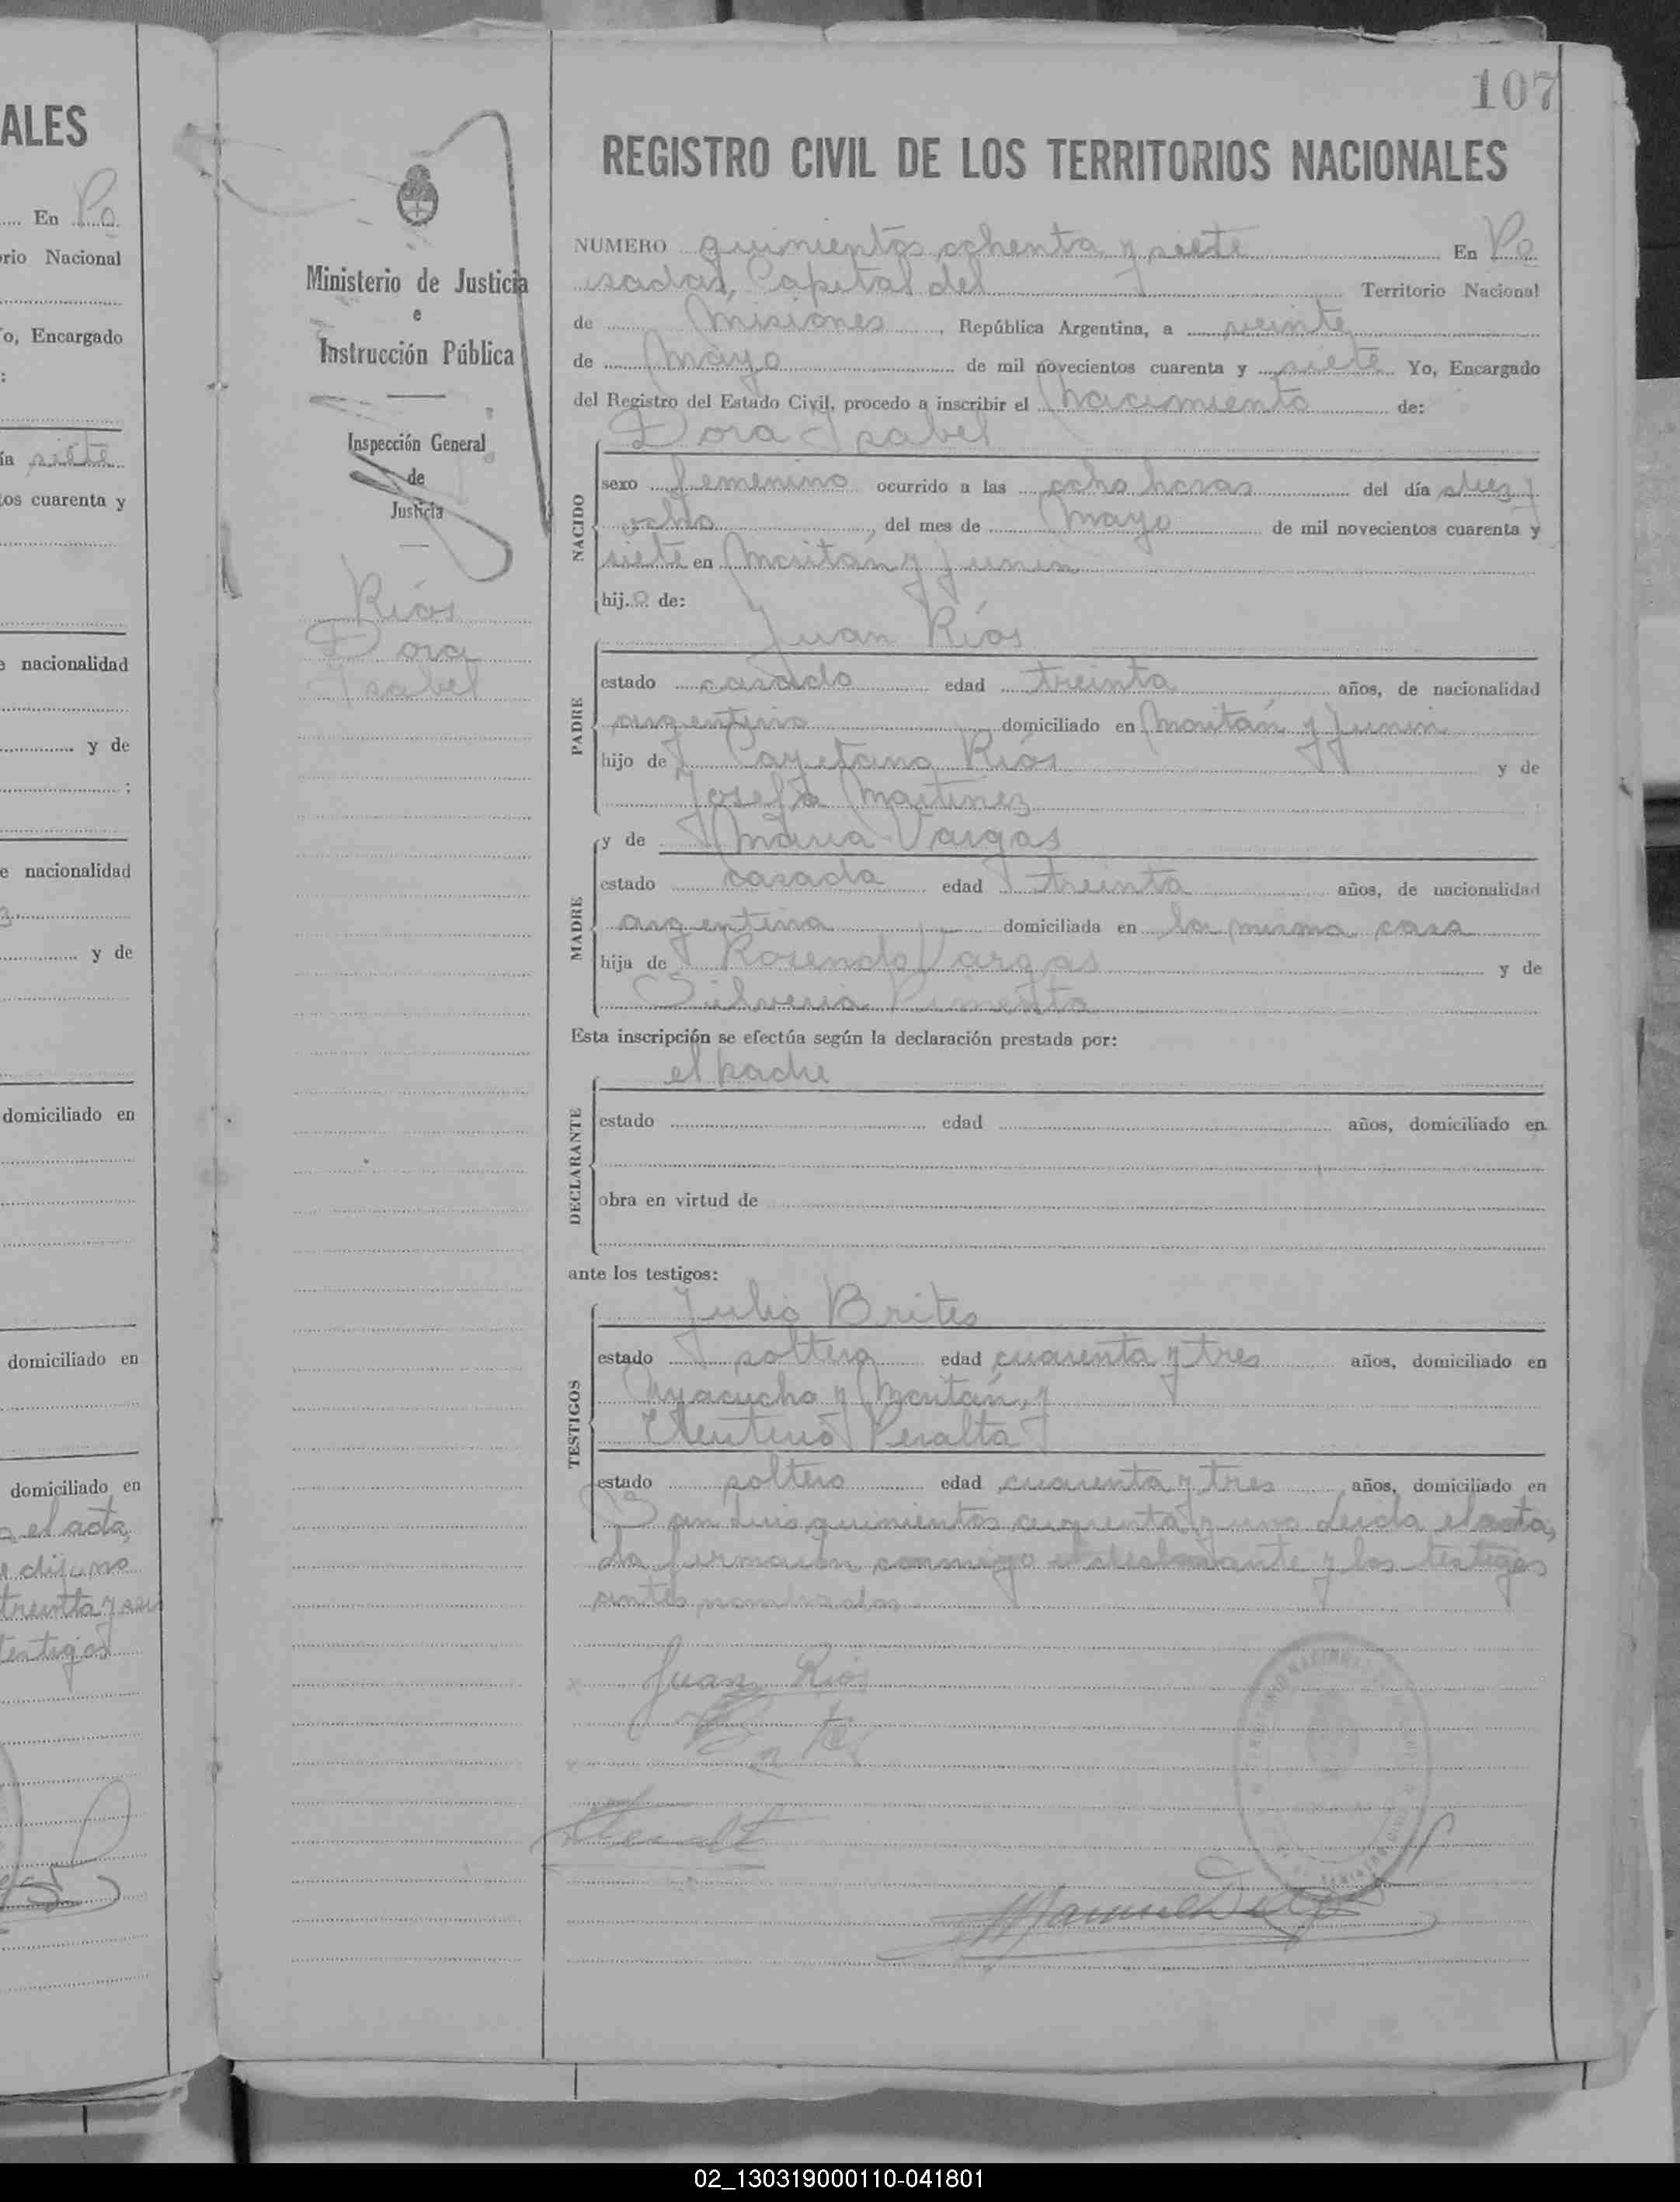 107
ALES
En Po
rio Nacional
o, Encargado
:
ía siete
tos cuarenta y
e nacionalidad
y de
;
e nacionalidad
y de
domiciliado en
domiciliado en
domiciliado en
el acta,
dijo no
treinta y seis
testigos
Ministerio de Justicia
e
Instrucción Pública
Inspección General
de
Justicia
Ríos
Dora
Isabel
REGISTRO CIVIL DE LOS TERRITORIOS NACIONALES
NUMERO quinientos ochenta y siete En Po
sadas, Capital del Territorio Nacional
de Misiones, República Argentina, a veinte
de Mayo de mil novecientos cuarenta y siete Yo, Encargado
del Registro del Estado Civil, procedo a inscribir el nacimiento de:
Dora Isabel
NACIDO
sexo femenino ocurrido a las ocho horas del día diez y
ocho, del mes de Mayo de mil novecientos cuarenta y
siete en Maitán y Junin
hij.a de:
Juan Ríos
PADRE
estado casado edad treinta años, de nacionalidad
argentino domiciliado en Maitán y Junin
hijo de Cayetano Ríos y de
Josefa Martinez
y de Maria Vargas
MADRE
estado casada edad treinta años, de nacionalidad
argentina domiciliada en la misma casa
hija de Rosendo Vargas y de
Silveria Pimenta
Esta inscripción se efectúa según la declaración prestada por:
el padre
DECLARANTE
estado edad años, domiciliado en
obra en virtud de
ante los testigos:
Julio Brites
TESTIGOS
estado soltero edad cuarenta y tres años, domiciliado en
Ayacucho y Maitán, y
Peralta
estado soltero edad cuarenta y tres años, domiciliado en
San Luis quinientos cuarenta y uno Leída el acta,
la firmaron conmigo el declarante y los testigos
antes nombrados
Juan Rios
02_130319000110-041801